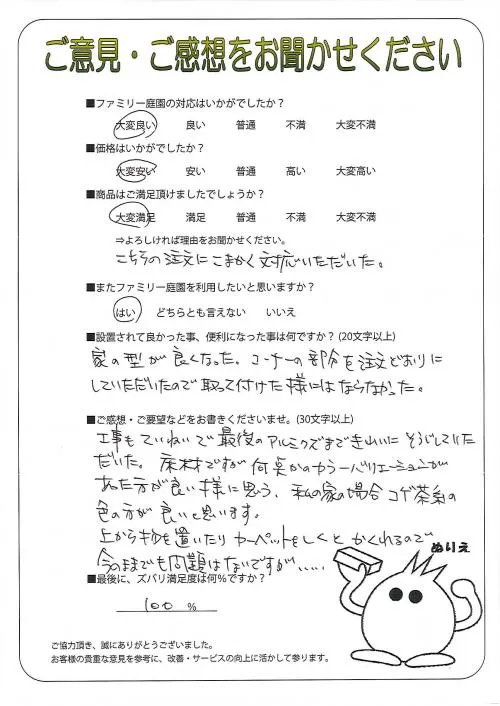 ご意見・ご感想をお聞かせください
■ファミリー庭園の対応はいかがでしたか？
大変良い 良い 普通 不満 大変不満
■価格はいかがでしたか？
大変安い 安い 普通 高い 大変高い
■商品はご満足頂けましたでしょうか？
大変満足 満足 普通 不満 大変不満
⇒よろしければ理由をお聞かせください。
こちらの注文にこまかく対応いただいた。
■またファミリー庭園を利用したいと思いますか？
はい どちらとも言えない いいえ
■設置されて良かった事、便利になった事は何ですか？(20文字以上)
家の型が良くなった。コーナーの部分を注文どおりに
していただいたので取って付けた様にはならなかった。
■ご感想・ご要望などをお書きくださいませ。(30文字以上)
工事もていねいで最後のアルミクズまできれいにそうじしていた
だいた。床材ですが何点かのカラーバリエーションが
あった方が良い様に思う、私の家の場合コゲ茶系の
色の方が良いと思います。
上から物を置いたりカーペットをしくとかくれるので
今のままでも問題はないですが、....
ぬりえ
■最後に、ズバリ満足度は何%ですか？
100 %
ご協力頂き、誠にありがとうございました。
お客様の貴重な意見を参考に、改善・サービスの向上に活かして参ります。